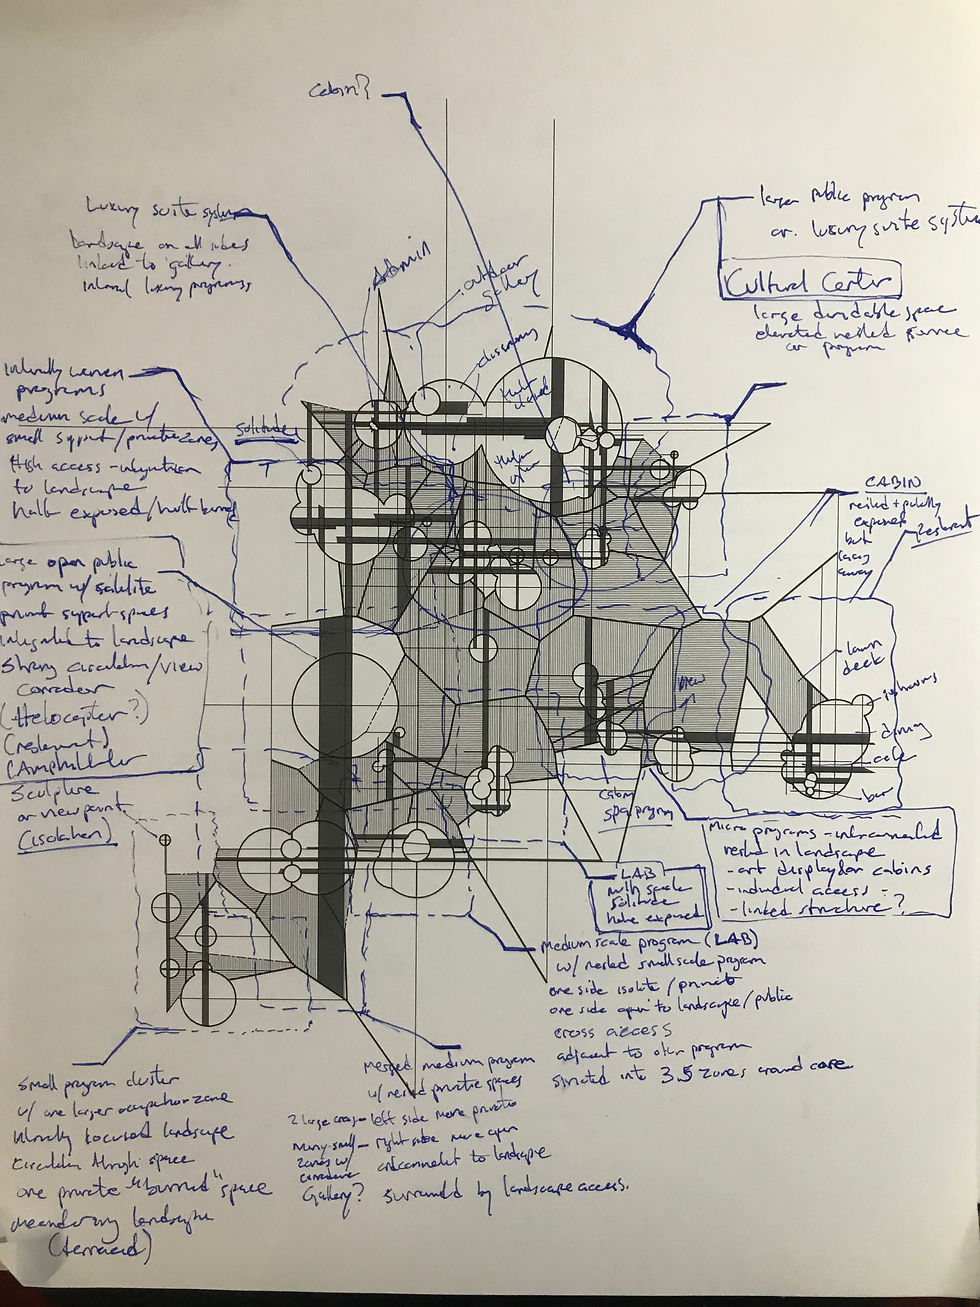 Cabin?
Luxury suite system
Landscape on all sides
linked to gallery.
Internal luxury programs
Admin
outdoor
gallery
dining
larger public program
or luxury suite system
Cultural Center
large dividable space
elevated nested service
or program
Internally woven
programs
medium scale w/
small support/private zones
High access - integration
to landscape
half exposed/half buried
Solitude
CABIN
nested + partially
exposed
but
away
Restaurant
Large open public
program w/ satellite
private support spaces
integrated to landscape
Strong circulation/view
corridor
(Helocopter?)
(restaurant)
(Amphitheater
Sculpture
or viewpoint
(isolation)
view
lawn
deck
dining
bar
cabin
spa program
LAB
multi scale
solitude
exposed
Micro programs - interconnected
nested in landscape
- art display for cabins
- individual access -
- linked structure?
medium scale program (LAB)
w/ nested small scale program
one side isolate/private
one side open to landscape/public
cross access
adjacent to other program
striated into 3.5 zones around core
Small program cluster
w/ one larger occupation zone
internally focused landscape
circulation through space
one private "burried" space
meandering landscape
(terraced)
merged medium program
w/ nested private spaces
2 large - left side more private
many small - right side more open
zones w/ and connect to landscape
Gallery? surround by landscape access.